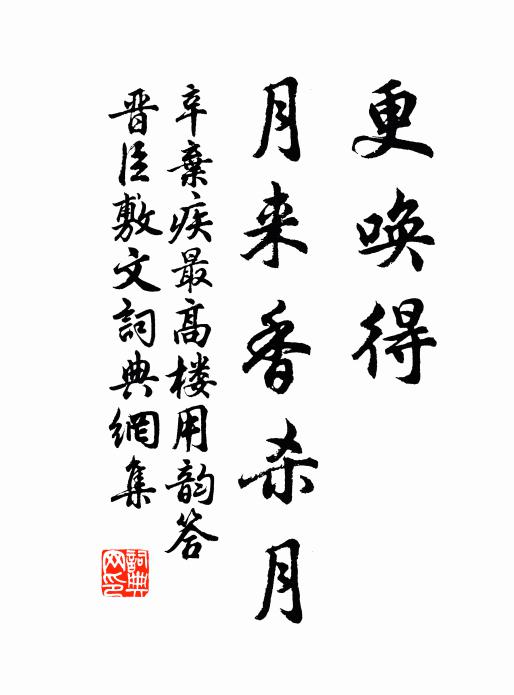 更唤得
月来香杀月
辛棄疾最高楼用韵答
晋臣敷文詞典網集
詞典
网印